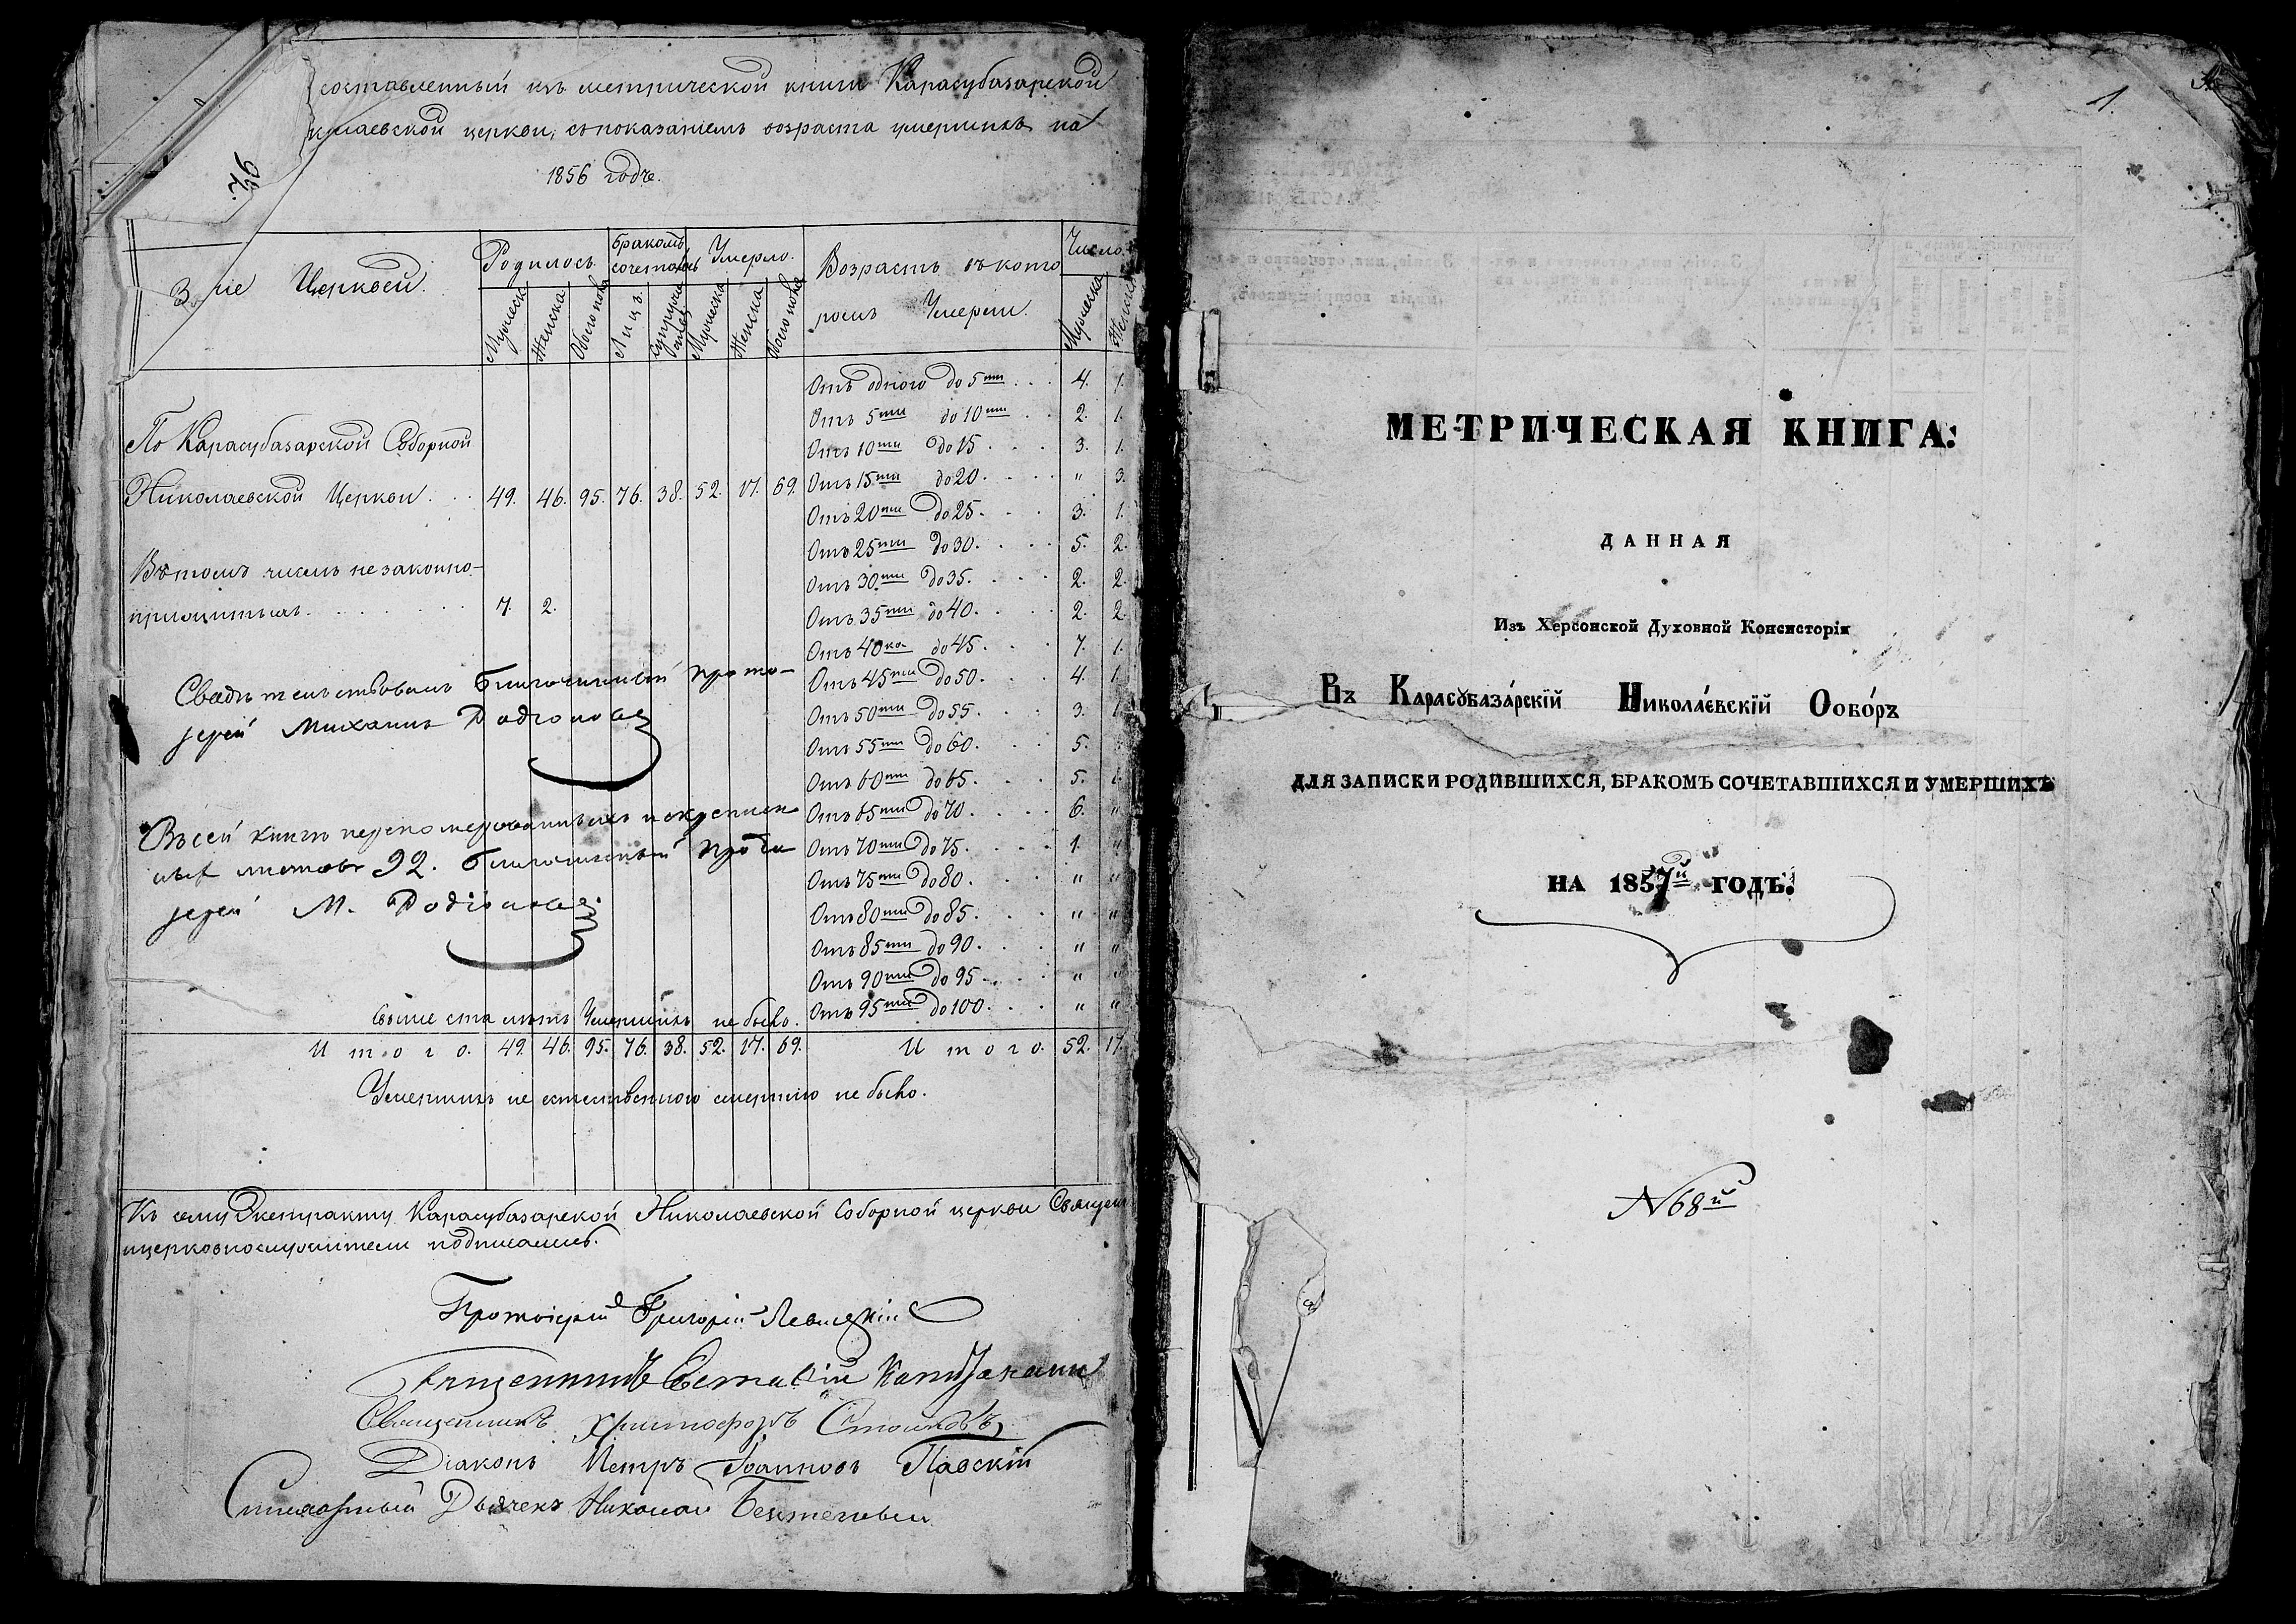 составленный къ метрической книги Карасубазарской
колаевской церкви, съ показаніемъ возраста умершихъ на
1856 годъ.
92.
Зв ніе Церквей.
Родилось.
бракомъ сочеталось
Умерло.
Возрастъ въ кото
ромъ Умерли.
Число.
Мужеска
Женска
Обоего пола
Лицъ
супружествъ
Мужеска
Женска
Обоего пола
Мужеска
Женска
Отъ одного до 5ти . . . 4. 1.
Отъ 5ти до 10ти . . 2. 1.
По Карасубазарской Соборной
Отъ 10ти до 15 . . . 3. 1.
Николаевской Церкви . . 49. 46. 95. 76. 38. 52. 17. 69.
Отъ 15ти до 20 . . . . " 3.
Отъ 20ти до 25 . . . 3. 1.
Отъ 25ти до 30 . . . . 5. 2.
Въ томъ числѣ незаконно-
Отъ 30ти до 35 . . . . 2. 2.
прижитыхъ . . . . . 7. 2.
Отъ 35ти до 40 . . . . 2. 2.
Отъ 40ка до 45 . . . 7. 1.
Отъ 45ти до 50 . . . 4. 1
Отъ 50ти до 55 . . . 3.
Отъ 55ти до 60 . . . 5.
Отъ 60ти до 65 . . . 5.
Отъ 65ти до 70 . . . . 6. "
Отъ 70ти до 75 . . . . 1. "
Отъ 75ти до 80 . . . " "
Отъ 80ти до 85 . . . " "
Отъ 85ти до 90 . . . " "
Отъ 90ти до 95 . . . " "
Отъ 95ти до 100 . . . " "
Свидѣтельствовалъ благочинный прото-
іерей Михаилъ Родіоновъ
Въ сей книгѣ перенумерованныхъ и скрѣплен
ныхъ листовъ 92. благочинный прото
іерей М. Родіоновъ
Свыше ста лѣтъ Умершихъ не было.
Итого. 49. 46. 95. 76. 38. 52. 17. 69. Итого. 52. 17.
Умершихъ не естественною смертію не было.
Къ сему Экстракту Карасубазарской Николаевской Соборной церкви Священно
ицерковнослужители подписались.
Протоіерей Григорій Левицкій
Священникъ
Священникъ Христофоръ Стоиковъ
Діаконъ Петръ Іоанновъ Павскій
Дьячекъ Николай
1.
МЕТРИЧЕСКАЯ КНИГА:
ДАННАЯ
Изъ Херсонской Духовной Консисторіи
Въ Карасубаза́рскій Никола́евскійОсобо́ръ
ДЛЯ ЗАПИСКИ РОДИВШИХСЯ, БРАКОМЪ СОЧЕТАВШИХСЯ И УМЕРШИХЪ
НА 1857й ГОДЪ.
N 68й